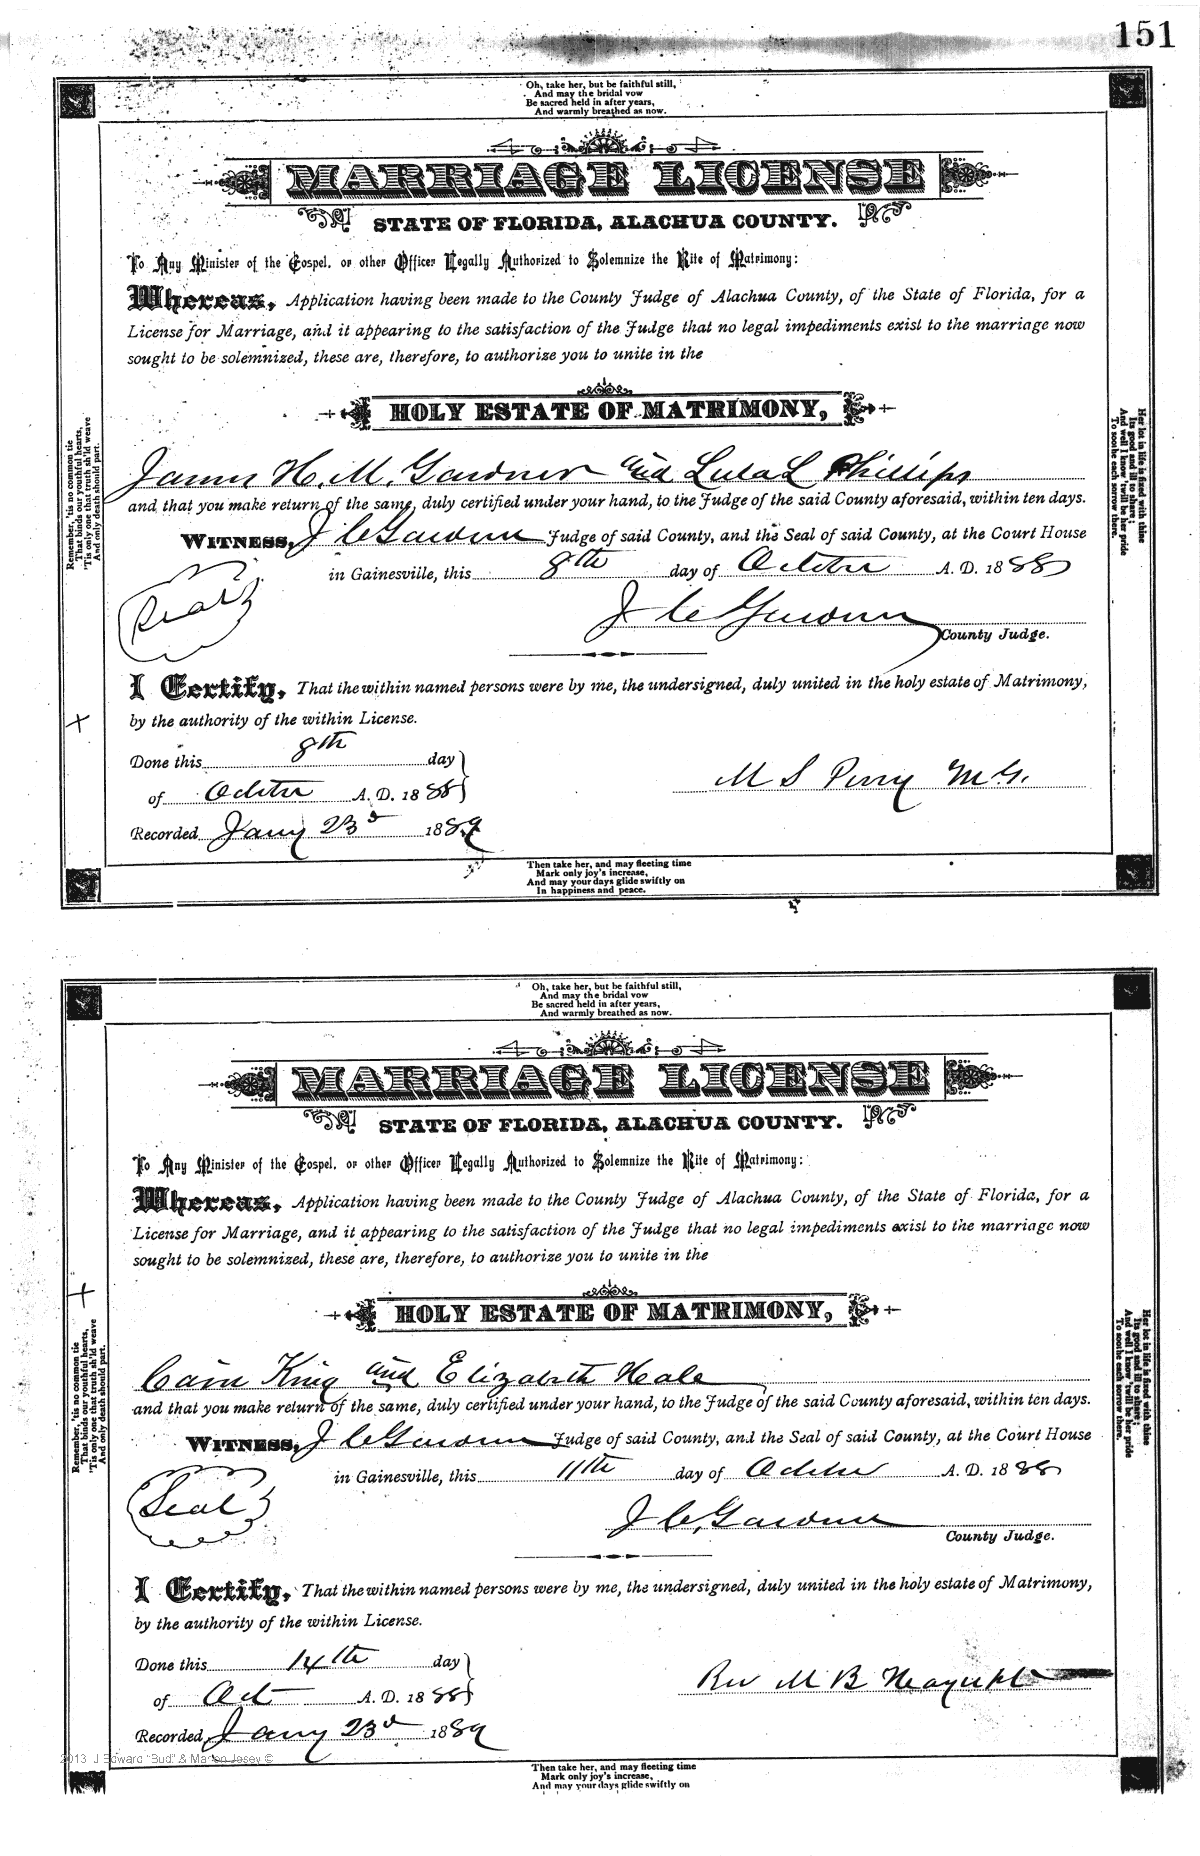 151
Oh, take her, but be faithful still,
And may the bridal vow
Be sacred held in after years,
And warmly breathed as now.
MARRIAGE LICENSE
STATE OF FLORIDA, ALACHUA COUNTY.
To Any Minister of the Gospel, or other Officer Legally Authorized to Solemnize the Rite of Matrimony:
Whereas, Application having been made to the County Judge of Alachua County, of the State of Florida, for a
License for Marriage, and it appearing to the satisfaction of the Judge that no legal impediments exist to the marriage now
sought to be solemnized, these are, therefore, to authorize you to unite in the
HOLY ESTATE OF MATRIMONY,
James H. M. Gardner and Lula L Phillips
and that you make return of the same, duly certified under your hand, to the Judge of the said County aforesaid, within ten days.
WITNESS, J C Gardner Judge of said County, and the Seal of said County, at the Court House
in Gainesville, this 8th day of October A. D. 1888
Seal
J C Gardner
County Judge.
I Certify, That the within named persons were by me, the undersigned, duly united in the holy estate of Matrimony,
by the authority of the within License.
Done this 8th day
of October A. D. 1888
M S Perry M G.
Recorded Jany 23d 1889
Remember, 'tis no common tie
That binds our youthful hearts,
'Tis only one that truth sh'ld weave
And only death should part.
Her lot in life is fixed with thine
Its good and ill to share;
And well I know 'twill be her pride
To soothe each sorrow there.
Then take her, and may fleeting time
Mark only joy's increase,
And may your days glide swiftly on
In happiness and peace.
Oh, take her, but be faithful still,
And may the bridal vow
Be sacred held in after years,
And warmly breathed as now.
MARRIAGE LICENSE
STATE OF FLORIDA, ALACHUA COUNTY.
To Any Minister of the Gospel, or other Officer Legally Authorized to Solemnize the Rite of Matrimony:
Whereas, Application having been made to the County Judge of Alachua County, of the State of Florida, for a
License for Marriage, and it appearing to the satisfaction of the Judge that no legal impediments exist to the marriage now
sought to be solemnized, these are, therefore, to authorize you to unite in the
HOLY ESTATE OF MATRIMONY,
Cain King and Elizabeth Hale
and that you make return of the same, duly certified under your hand, to the Judge of the said County aforesaid, within ten days.
WITNESS, J C Gardner Judge of said County, and the Seal of said County, at the Court House
in Gainesville, this 11th day of October A. D. 1888
Seal
J C. Gardner
County Judge.
I Certify, That the within named persons were by me, the undersigned, duly united in the holy estate of Matrimony,
by the authority of the within License.
Done this 14th day
of Oct A. D. 1888
Rev M B
Recorded Jany 23d 1889
Remember, 'tis no common tie
That binds our youthful hearts,
'Tis only one that truth sh'ld weave
And only death should part.
Her lot in life is fixed with thine
Its good and ill to share;
And well I know 'twill be her pride
To soothe each sorrow there.
2013 J Edward "Bud" & Marion Josey ©
Then take her, and may fleeting time
Mark only joy's increase,
And may your days glide swiftly on